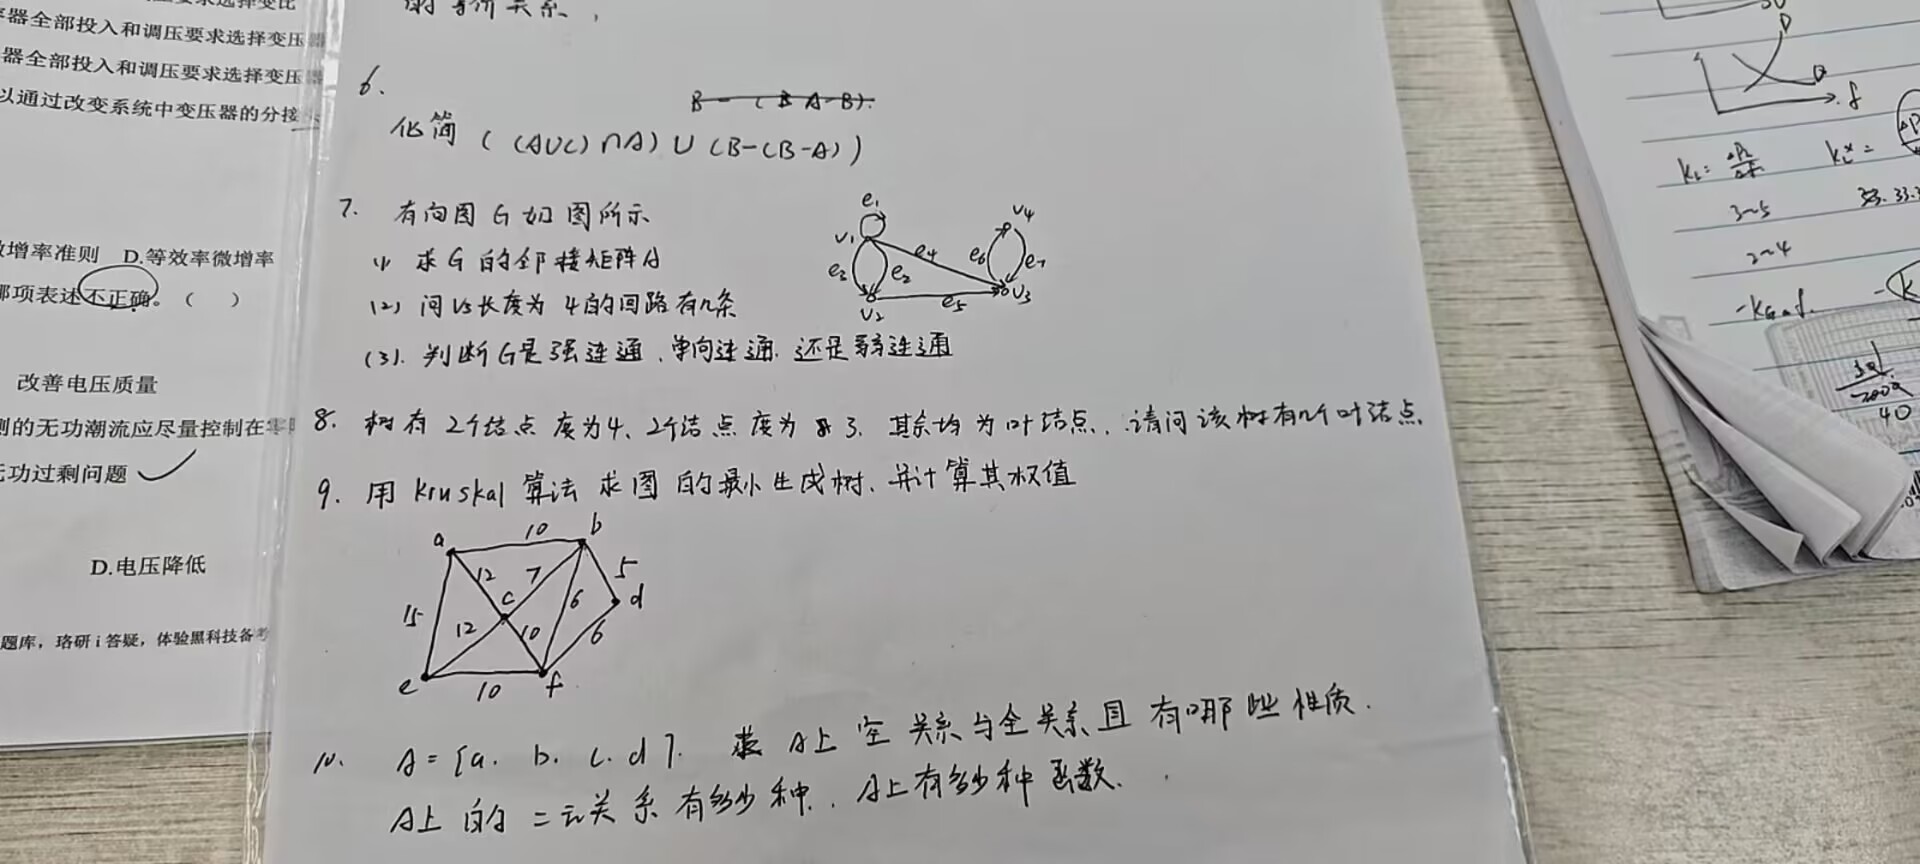 器全部投入和调压要求选择变压器
器全部投入和调压要求选择变压器
以通过改变系统中变压器的分接头
增率准则 D.等效率微增率
哪项表述不正确。（ ）
改善电压质量
侧的无功潮流应尽量控制在零
无功过剩问题
D.电压降低
题库，珞研i答疑，体验黑科技备考
的等价关系，
6.
B-(B A-B).
化简 ((AUC)∩A)U(B-(B-A))
7. 有向图G如图所示
(1) 求G的邻接矩阵A
(2) 问V3长度为4的回路有几条
(3). 判断G是强连通、单向连通、还是弱连通
e1
V1
e3
e2
e4
V2
e5
V3
e6
e7
V4
8. 树有2个结点度为4、2个结点度为3、其余均为叶结点，请问该树有几个叶结点
9. 用Kruskal算法求图的最小生成树、并计算其权值
a 10 b
12 7 5
c 6 d
15 12 10 6
e 10 f
10. A={a. b. c. d}. 求A上空关系与全关系且有哪些性质.
A上的二元关系有多少种、A上有多少种函数.
3~5
2~4
40